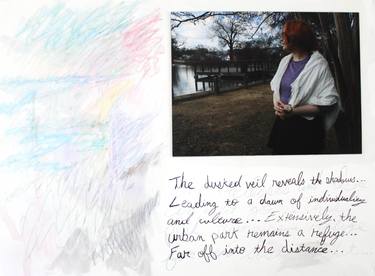 The dusked veil reveals the shadows...
Leading to a dawn of individuality
and culture... Extensively, the
urban park remains a refuge...
Far off into the distance...